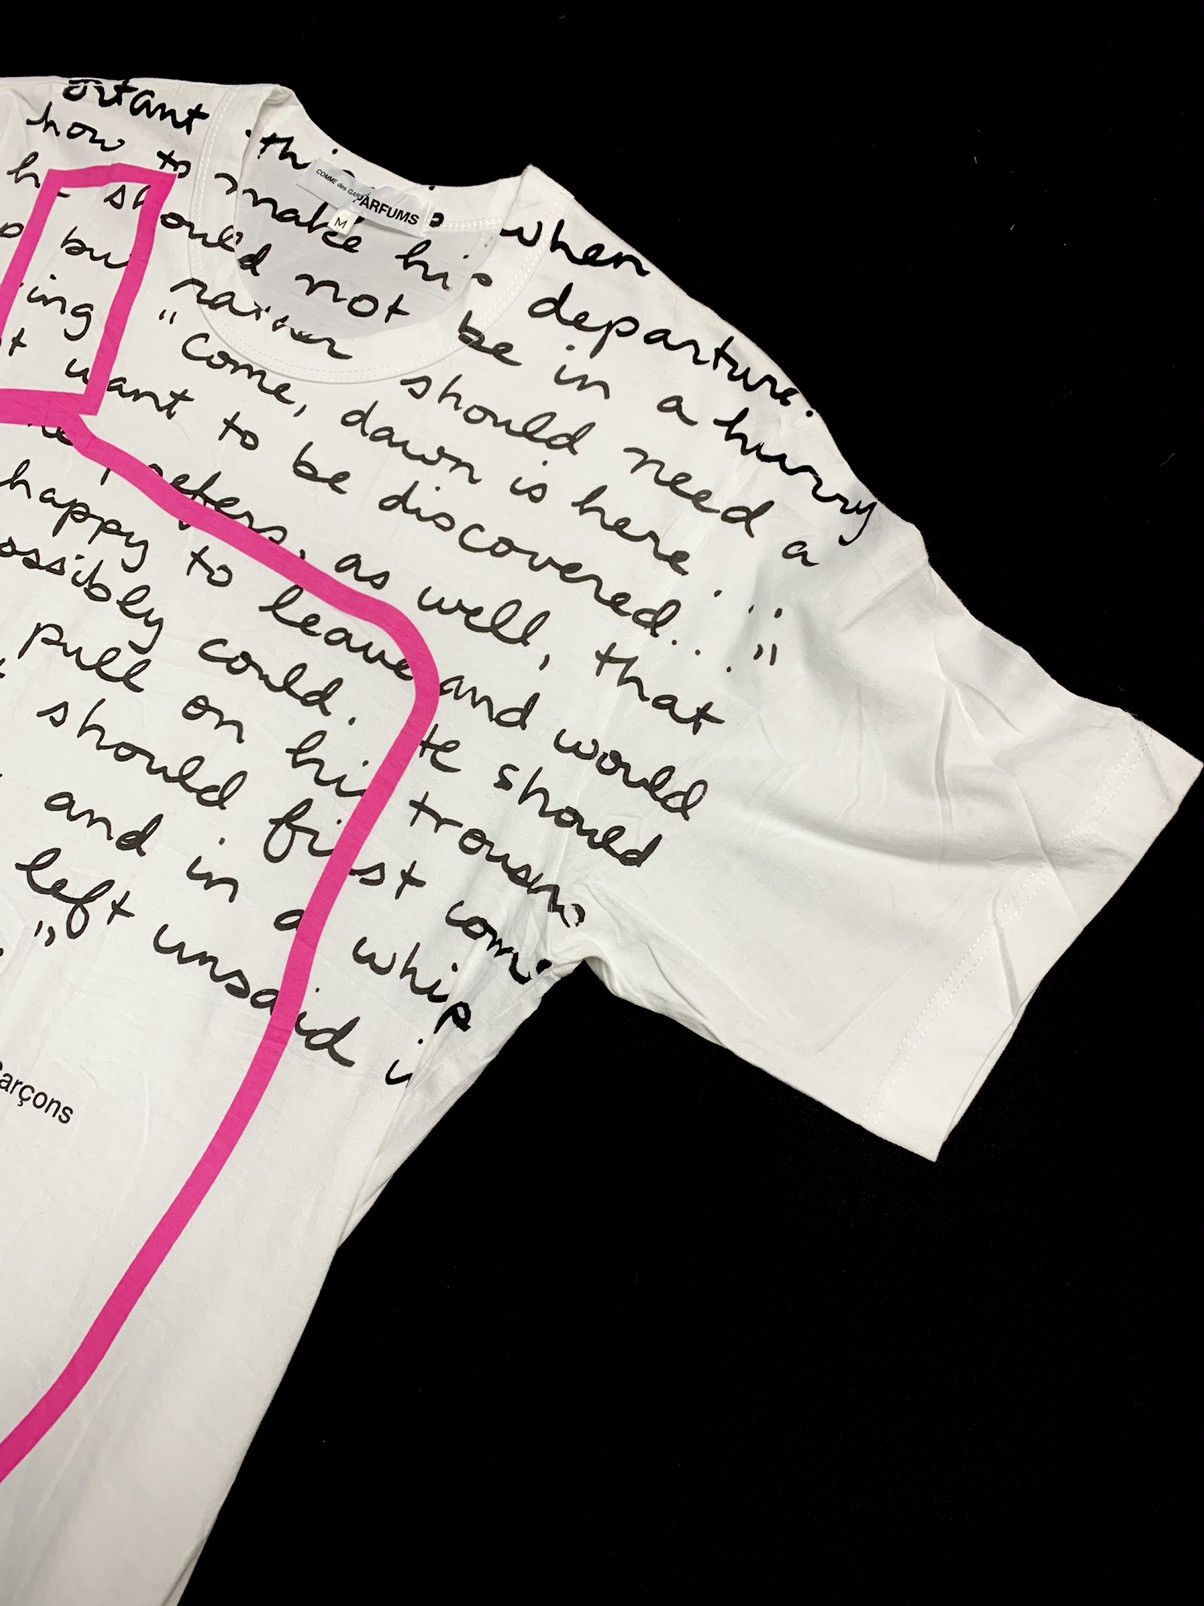 ortant when
how to make his departure.
should not be in a hurry
but rather should need a
ing "Come, dawn is here...
t want to be discovered..."
prefers, as well, that
happy to leave and would
ossibly could. should
pull on his
should first
and in a whip
left unsaid
COMME des GARÇONS
PARFUMS
M
arçons